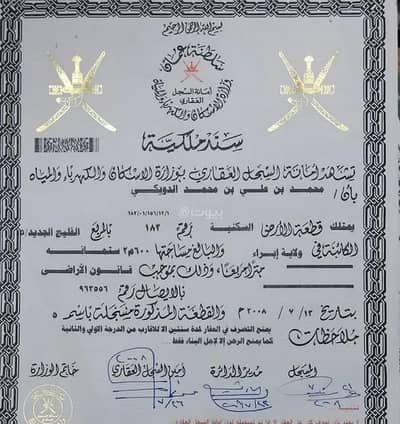 بسم الله الرحمن الرحيم
سلطنة عمان
وزارة الاسكان والكهرباء والمياه
أمانة السجل
العقاري
سند ملكية
تشهد أمانة السجل العقاري بوزارة الاسكان والكهرباء والمياه
بأن / محمد بن علي بن محمد الدويكي
١٨٣/٠١/١٥٦/١٢/٦
بيوت
يمتلك قطعة الأرض السكنية رقم ١٨٣ بالمربع الخليج الجديد/٥
الكائنة في ولاية إبراء والبالغ مساحتها ٦٠٠م٢ ستمائه
متر مربعا، وذلك بموجب قانون الأراضي
بالايصال رقم ٩٦٢٥٥٦
بتاريخ ١٢ / ٧ / ٢٠٠٨م والقطعة المذكورة مسجلة باسمه ٥
ملاحظات: يمنع التصرف في العقار لمدة سنتين الا للأقارب من الدرجة الاولي والثانية
كما يمنع الرهن إلا لأجل البناء فقط ..
المسجل
مدير الدائرة
أمين السجل العقاري
خاتم الوزارة